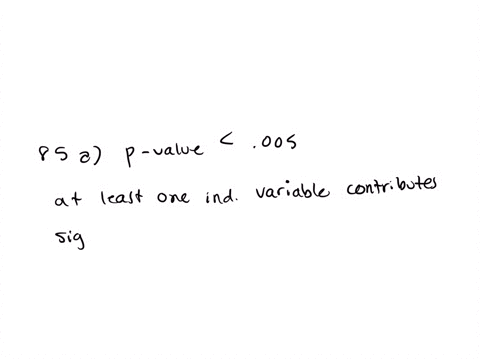 85 a) p-value < .005
at least one ind. variable contributes
sig